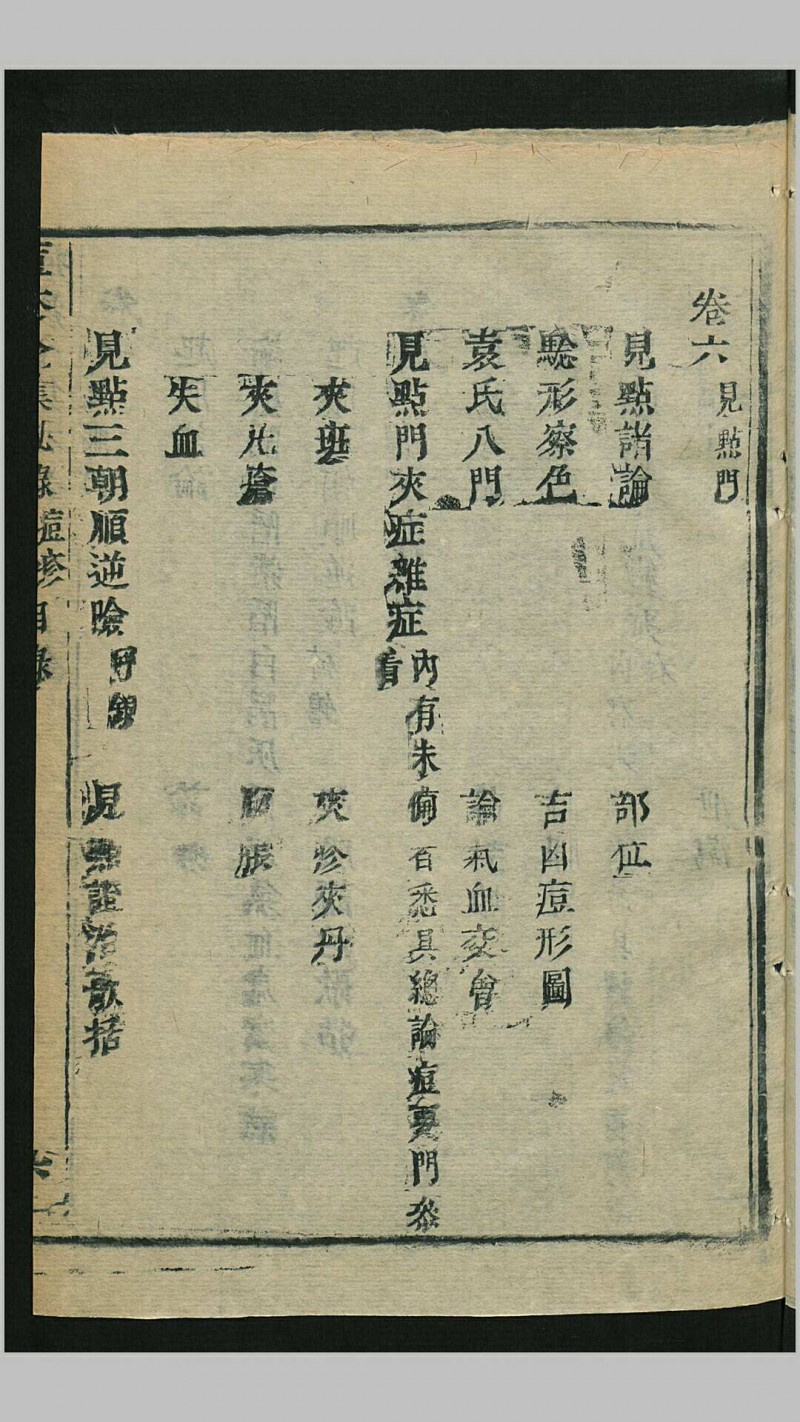 卷六 見點門
見點諸論 部位
驗形察色 吉凶痘形圖
袁氏八門 論氣血交會
見點門夾症雜症 內有未備者悉具總論痘要門叅看
夾斑 夾疹夾丹
夾 腹脹
失血
見點三朝順逆險 見點證治歌括
全集 痘疹目錄